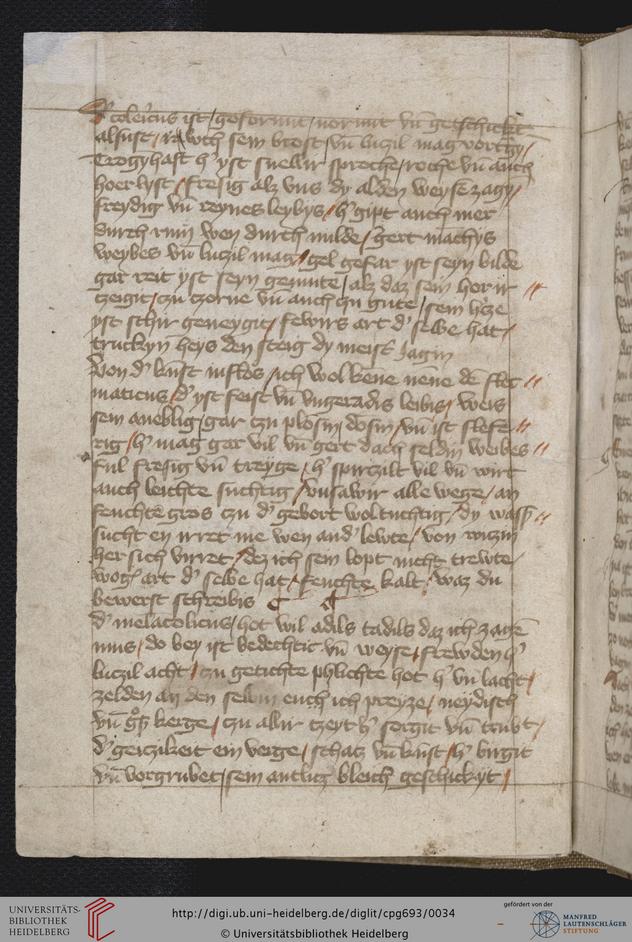 D' coleric9 ist / geformit / normit vn̄ getschickt
alsust / rawch sein brost / vn̄ luczil mag
Trogyhaft h' yst sneller sproche / roche vn̄ auch
hoer lyst / fresig alz vns dy alden weysē zagȳ /
freydig vn̄ reynes leybys / h' gipt auch mer
durch rum wen durch milde / gert machys
weybes vn̄ luczil mag / gel gefar yst seyn bilde
gar reit yst seyn gemute / alz daz sein hor ir //
czeigit / czu czorne vn̄ auch czu gute / sein h'cze
yst schir geneygit / fewirs art d' selbe hat /
truckyn heys den steig dy meist' Jagin
Von d' kunst influs / ich wol kene nēne dē fleg //
maticus / d' yst feist vn̄ vngeradis leibis / weis
sein aneblig / gar czu plosin dosin / vn̄ ist slefe //
rig / h' mag gar vil vn̄ gert dach seldin weibes //
ful fresig vn̄ treyge / h' spirczilt vil vn̄ wirt
auch leichte suchtig / vnsawir alle wege / an
feuchtē gros czu d' gebort woltuchtig / dy wass' //
sucht en irret me wen and' lewte / von
her sich virret / dez ich sein lopt nicht trewte /
wog' art d' selbe hat / feuchte kalt / waz du
bewerst schreibis
d' melacolicus / hot wil adils tadils daz ich zagē
mus / do bey ist bedechtic vn̄ weyse / frewden h'
luczil acht / czu getichte phlichte hot h' vn̄ lacht /
zelden an den selbin euch ich preyze / neydisch
vn̄ kerge / czu allir czeyt h' sorgit vn̄ trubt /
d' geiczikeit ein verge / schacz vn̄ kunst / h' birgit
vn̄ vorgrubet / sein antlicz bleich geschickyt /
UNIVERSITÄTS-
BIBLIOTHEK
HEIDELBERG
http://digi.ub.uni-heidelberg.de/diglit/cpg693/0034
© Universitätsbibliothek Heidelberg
gefördert von der
MANFRED
LAUTENSCHLÄGER
STIFTUNG